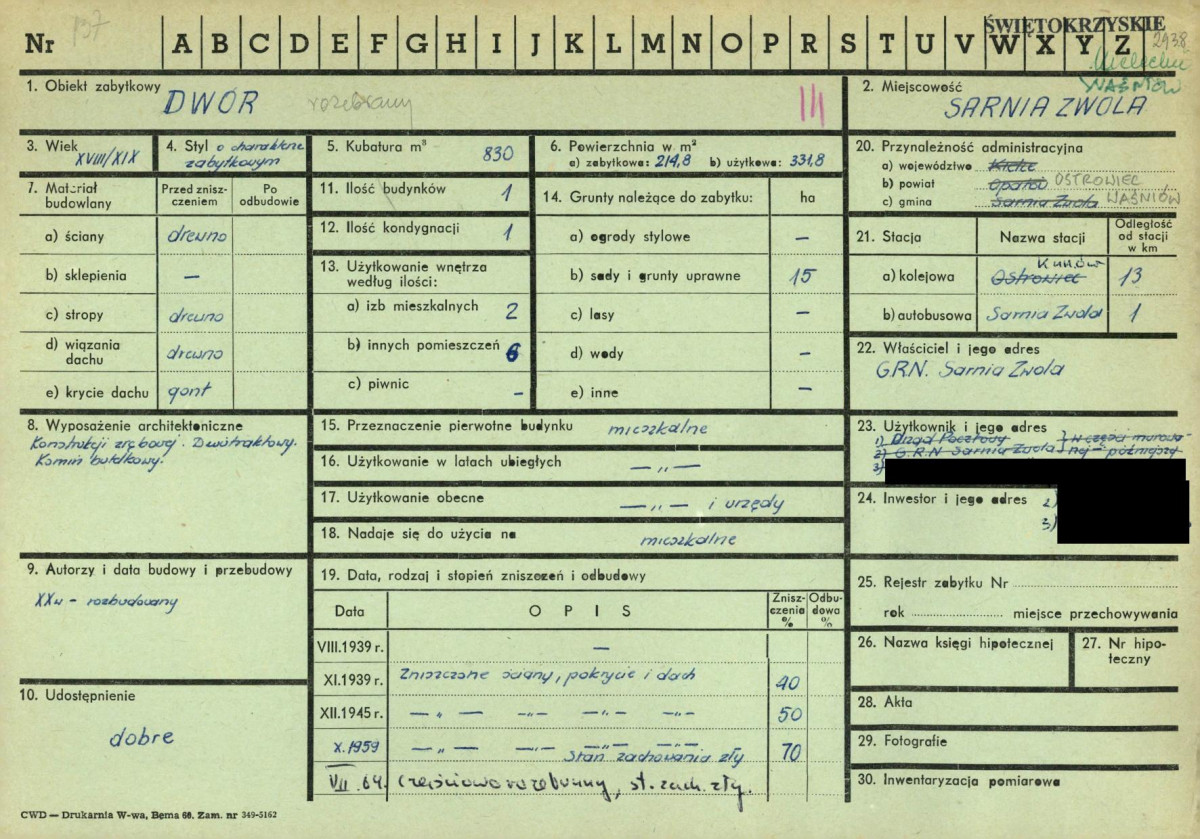 Nr 137 A B C D E F G H I J K L M N O P R S T U V W X Y Z
ŚWIĘTOKRZYSKIE
2938
WAŚNIÓW
1. Obiekt zabytkowy
DWÓR rozebrany
2. Miejscowość
SARNIA ZWOLA
3. Wiek
XVIII/XIX
4. Styl o charakterze
zabytkowym
5. Kubatura m³ 830
6. Powierzchnia w m²
a) zabytkowa: 214,8 b) użytkowa: 331,8
7. Materiał budowlany
Przed zniszczeniem
Po odbudowie
a) ściany drewno
b) sklepienia —
c) stropy drewno
d) wiązania dachu drewno
e) krycie dachu gont
8. Wyposażenie architektoniczne
Konstrukcji zrębowej. Dwutraktowy.
Komin butelkowy.
9. Autorzy i data budowy i przebudowy
XXw – rozbudowany
10. Udostępnienie
dobre
11. Ilość budynków 1
12. Ilość kondygnacji 1
13. Użytkowanie wnętrza
według ilości:
a) izb mieszkalnych 2
b) innych pomieszczeń 6
c) piwnic –
14. Grunty należące do zabytku: ha
a) ogrody stylowe –
b) sady i grunty uprawne 15
c) lasy –
d) wody –
e) inne –
15. Przeznaczenie pierwotne budynku mieszkalne
16. Użytkowanie w latach ubiegłych — „ —
17. Użytkowanie obecne — „ — i urzędy
18. Nadaje się do użycia na mieszkalne
19. Data, rodzaj i stopień zniszczeń i odbudowy
Data OPIS Zniszczenia % Odbudowa %
VIII.1939 r. —
XI.1939 r. Zniszczone ściany, pokrycie i dach 40
XII.1945 r. — „ — —„— —„— —„— 50
X.1959 — „ — —„— —„— —„— 70
Stan zachowania zły
VII.64. częściowo rozebrany, st. zach. zły.
20. Przynależność administracyjna
a) województwo Kielce
b) powiat Opatów OSTROWIEC
c) gmina Sarnia Zwola WAŚNIÓW
21. Stacja Nazwa stacji Odległość od stacji w km
Kunów
a) kolejowa Ostrowiec 13
b) autobusowa Sarnia Zwola 1
22. Właściciel i jego adres
G.R.N. Sarnia Zwola
23. Użytkownik i jego adres
1) Urząd Pocztowy } w części murowa-
2) G.R.N Sarnia Zwola nej – późniejszy
3)
24. Inwestor i jego adres 2)
3)
25. Rejestr zabytku Nr
rok miejsce przechowywania
26. Nazwa księgi hipotecznej
27. Nr hipoteczny
28. Akta
29. Fotografie
30. Inwentaryzacja pomiarowa
CWD — Drukarnia W-wa, Bema 60. Zam. nr 349-5162